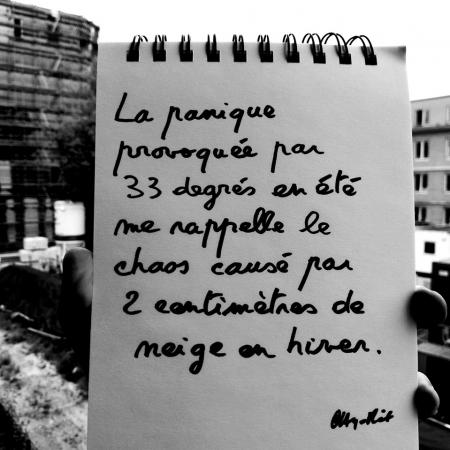 La panique
provoquée par
33 degrés en été
me rappelle le
chaos causé par
2 centimètres de
neige en hiver.